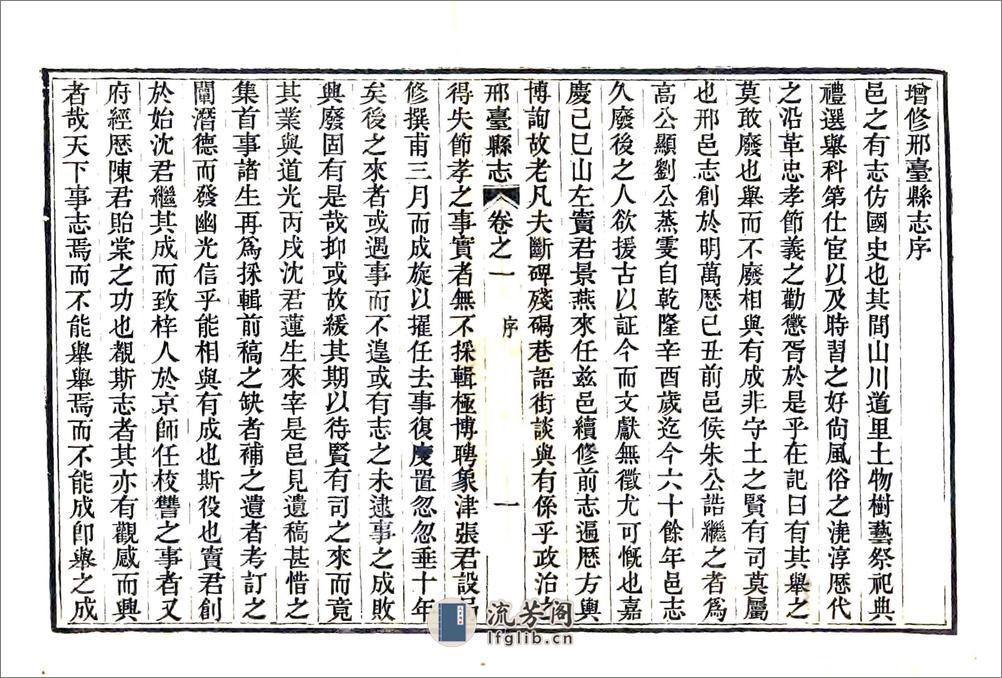 增修邢臺縣志序
邑之有志仿國史也其間山川道里土物樹藝祭祀典
禮選舉科第仕宦以及時習之好尙風俗之澆淳歷代
之沿革忠孝節義之勸懲胥於是乎在記曰有其舉之
莫敢廢也舉而不廢相與有成非守土之賢有司莫屬
也邢邑志創於明萬歷己丑前邑侯朱公誥繼之者爲
高公顯劉公蒸雯自乾隆辛酉歲迄今六十餘年邑志
久廢後之人欲援古以証今而文獻無徵尤可慨也嘉
慶己巳山左竇君景燕來任茲邑續修前志遍歷方輿
博詢故老凡夫斷碑殘碣巷語街談與有係乎政治之
邢臺縣志 卷之一 序 一
得失節孝之事實者無不採輯極博聘象津張君設局
修撰甫三月而成旋以擢任去事復庋置忽忽垂十年
矣後之來者或遇事而不遑或有志之未逮事之成敗
興廢固有是哉抑或故緩其期以待賢有司之來而竟
其業與道光丙戌沈君蓮生來宰是邑見遺稿甚惜之
集首事諸生再爲採輯前稿之缺者補之遺者考訂之
闡潛德而發幽光信乎能相與有成也斯役也竇君創
於始沈君繼其成而致梓人於京師任校讐之事者又
府經歷陳君貽棠之功也觀斯志者其亦有觀感而興
者哉天下事志焉而不能舉舉焉而不能成卽舉之成
流芳阁
lfglib.cn